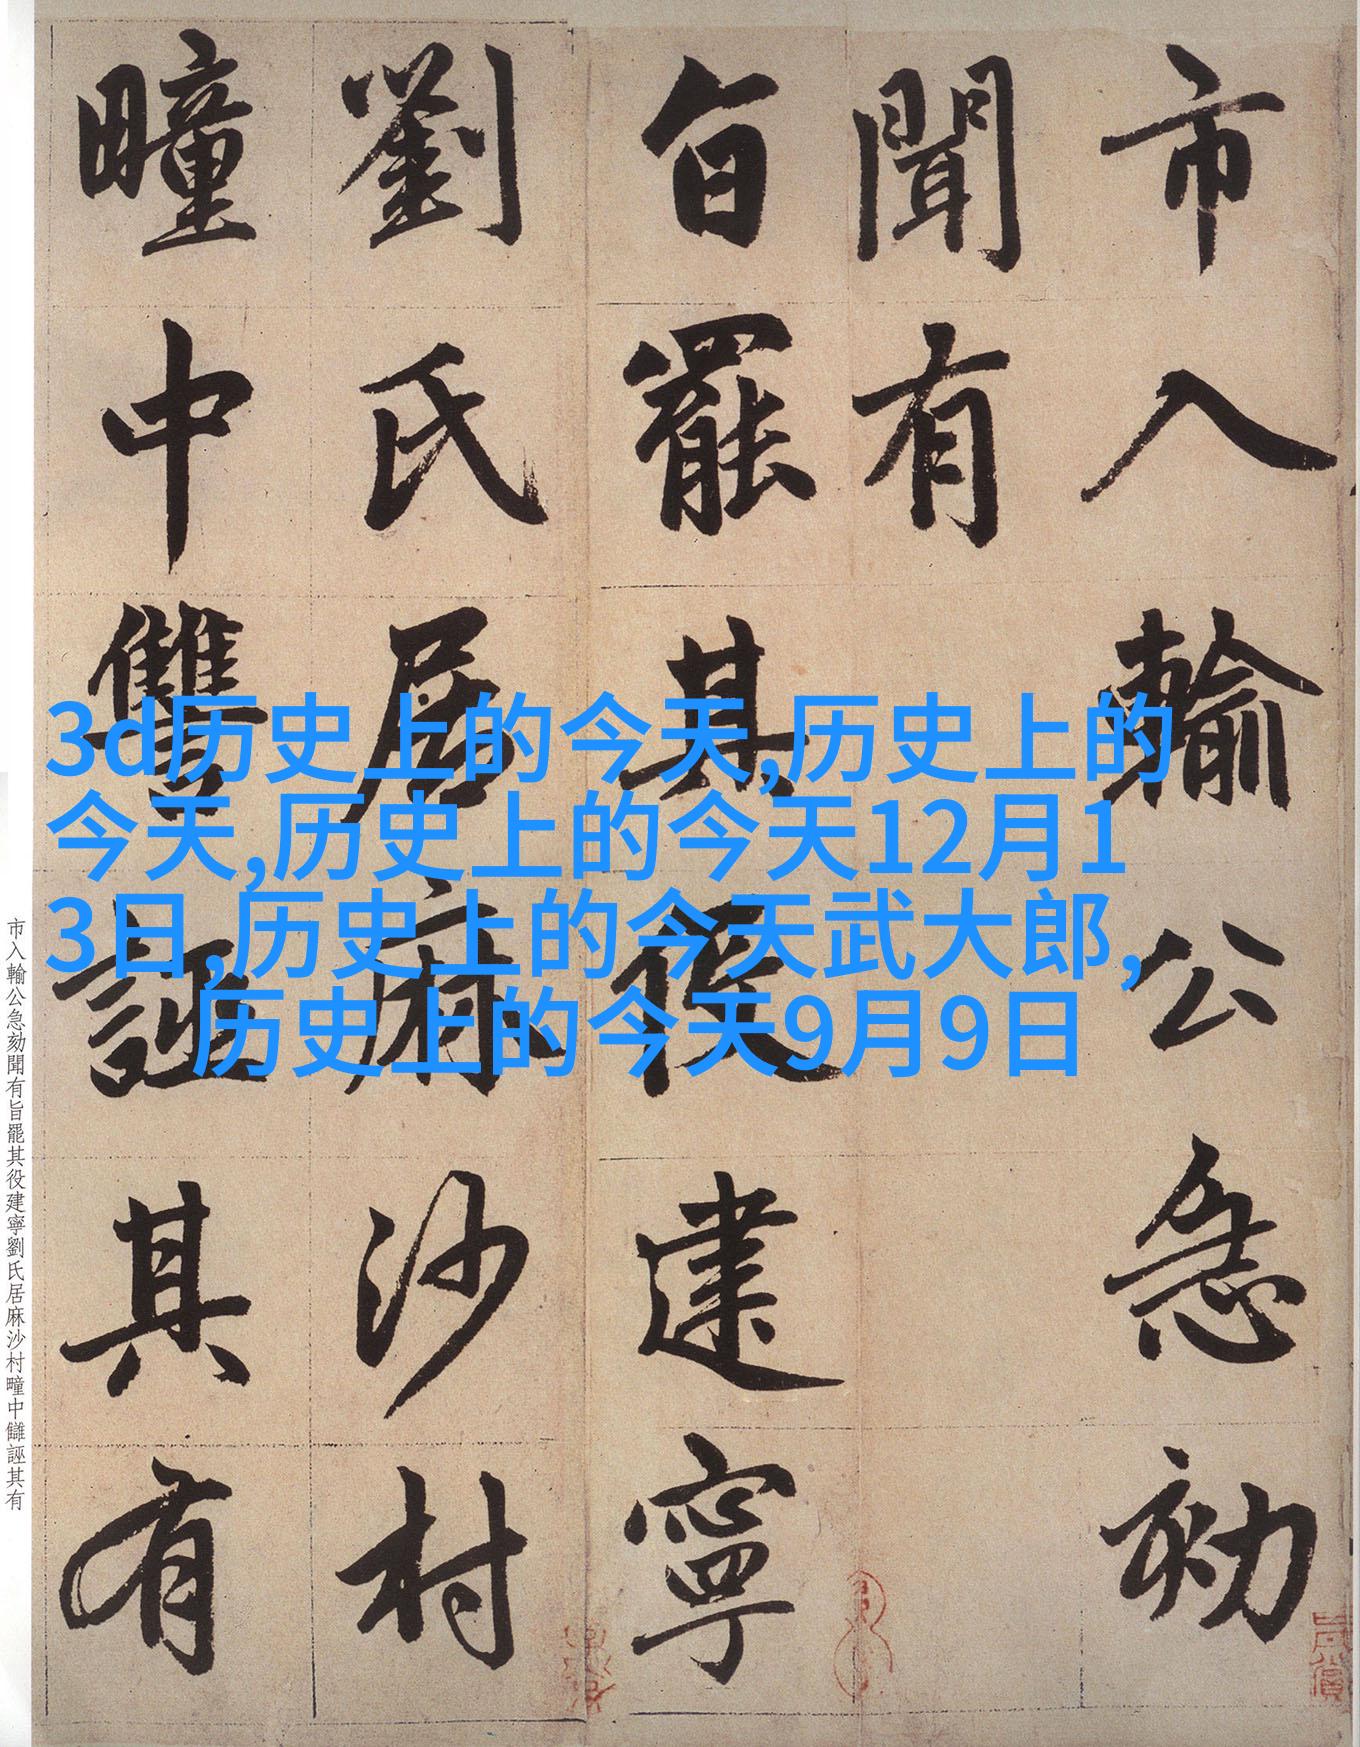 市入輸公急劾
聞有
旨罷其役建寧
劉氏居麻沙村
疃中讐誣其有
3d历史上的今天,历史上的
今天,历史上的今天12月1
3日,历史上的今天武大郎,
历史上的今天9月9日
市入輸公急劾聞有旨罷其役建寧劉氏居麻沙村疃中讎誣其有